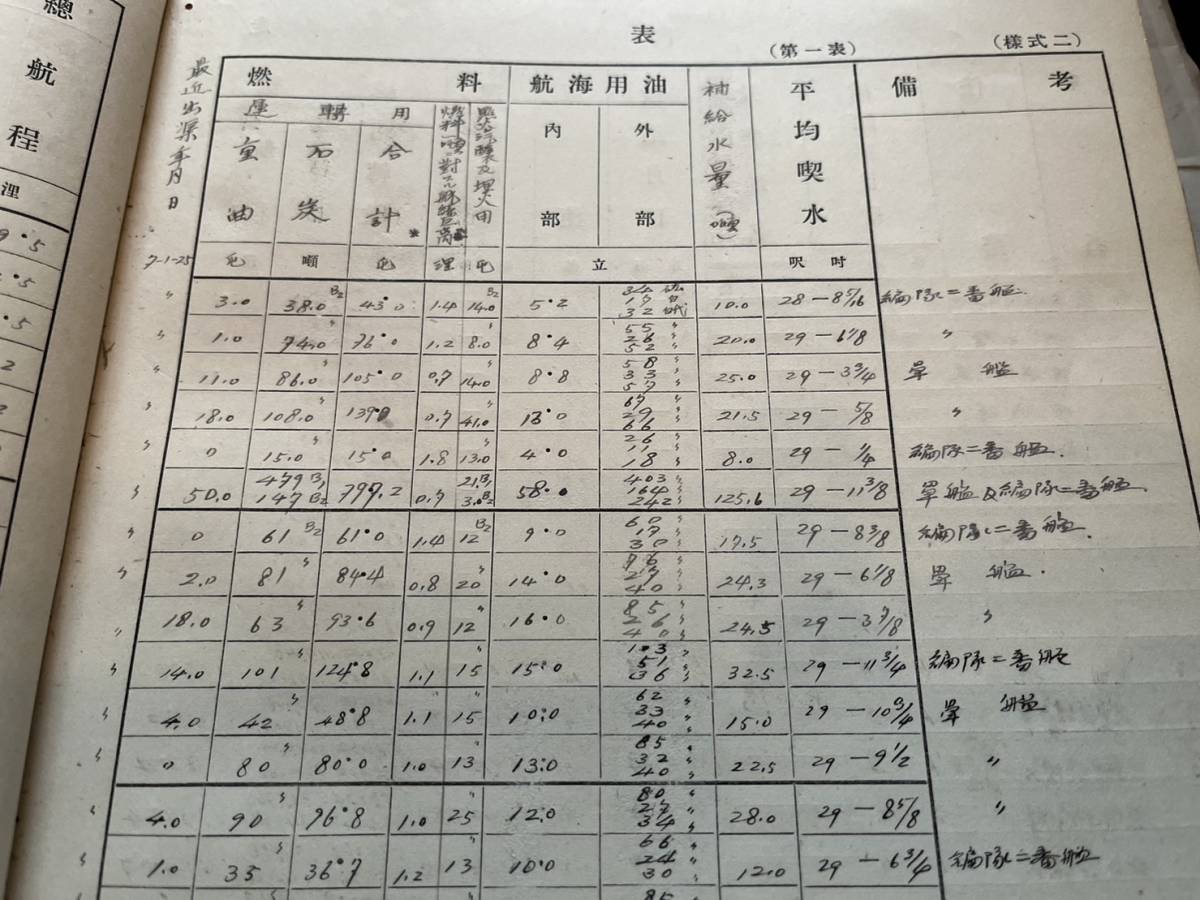 總航程
浬
表
(第一表)
(様式二)
最近出渠年月日
燃料 航海用油 補給水量(噸) 平均喫水 備考
運轉用
重油 石炭 合計 內部 外部
瓲 噸 瓲 浬 瓲 立 呎 吋
7-1-25
〃 3.0 38.0 B2 43.0 1.4 B2 14.0 5.2 34 17 32 10.0 28-8 5/16 編隊二番艦
〃 1.0 74.0 〃 76.0 1.2 〃 8.0 8.4 55 26 52 〃 20.0 29-6 1/8 〃
〃 11.0 86.0 〃 105.0 0.7 〃 14.0 8.8 58 33 57 〃 25.0 29-3 3/4 單艦
〃 18.0 108.0 〃 139.0 0.7 〃 41.0 13.0 67 29 66 〃 21.5 29-5/8 〃
〃 0 15.0 〃 15.0 1.8 〃 13.0 4.0 26 11 18 〃 8.0 29-1/4 編隊二番艦.
〃 50.0 479 B1 147 B2 797.2 0.7 21 B1 3.0 B2 58.0 403 164 242 〃 125.6 29-11 3/8 單艦及編隊二番艦
〃 0 61 B2 61.0 1.4 B2 12 9.0 60 17 30 〃 17.5 29-8 3/8 編隊二番艦.
〃 2.0 81 〃 84.4 0.8 〃 20 14.0 76 27 40 〃 24.3 29-6 1/8 單艦.
〃 18.0 63 〃 93.6 0.9 〃 12 16.0 85 26 40 〃 24.5 29-3 7/8 〃
〃 14.0 101 〃 124.8 1.1 〃 15 15.0 103 51 36 〃 32.5 29-11 3/4 編隊二番艦
〃 4.0 42 〃 48.8 1.1 〃 15 10.0 62 33 40 〃 15.0 29-10 3/4 單艦
〃 0 80 〃 80.0 1.0 〃 13 13.0 85 32 40 〃 22.5 29-9 1/2 〃
〃 4.0 90 〃 96.8 1.0 〃 25 12.0 80 27 34 〃 28.0 29-8 5/8 〃
〃 1.0 35 〃 36.7 1.2 〃 13 10.0 66 24 30 〃 12.0 29-6 3/4 編隊二番艦
85